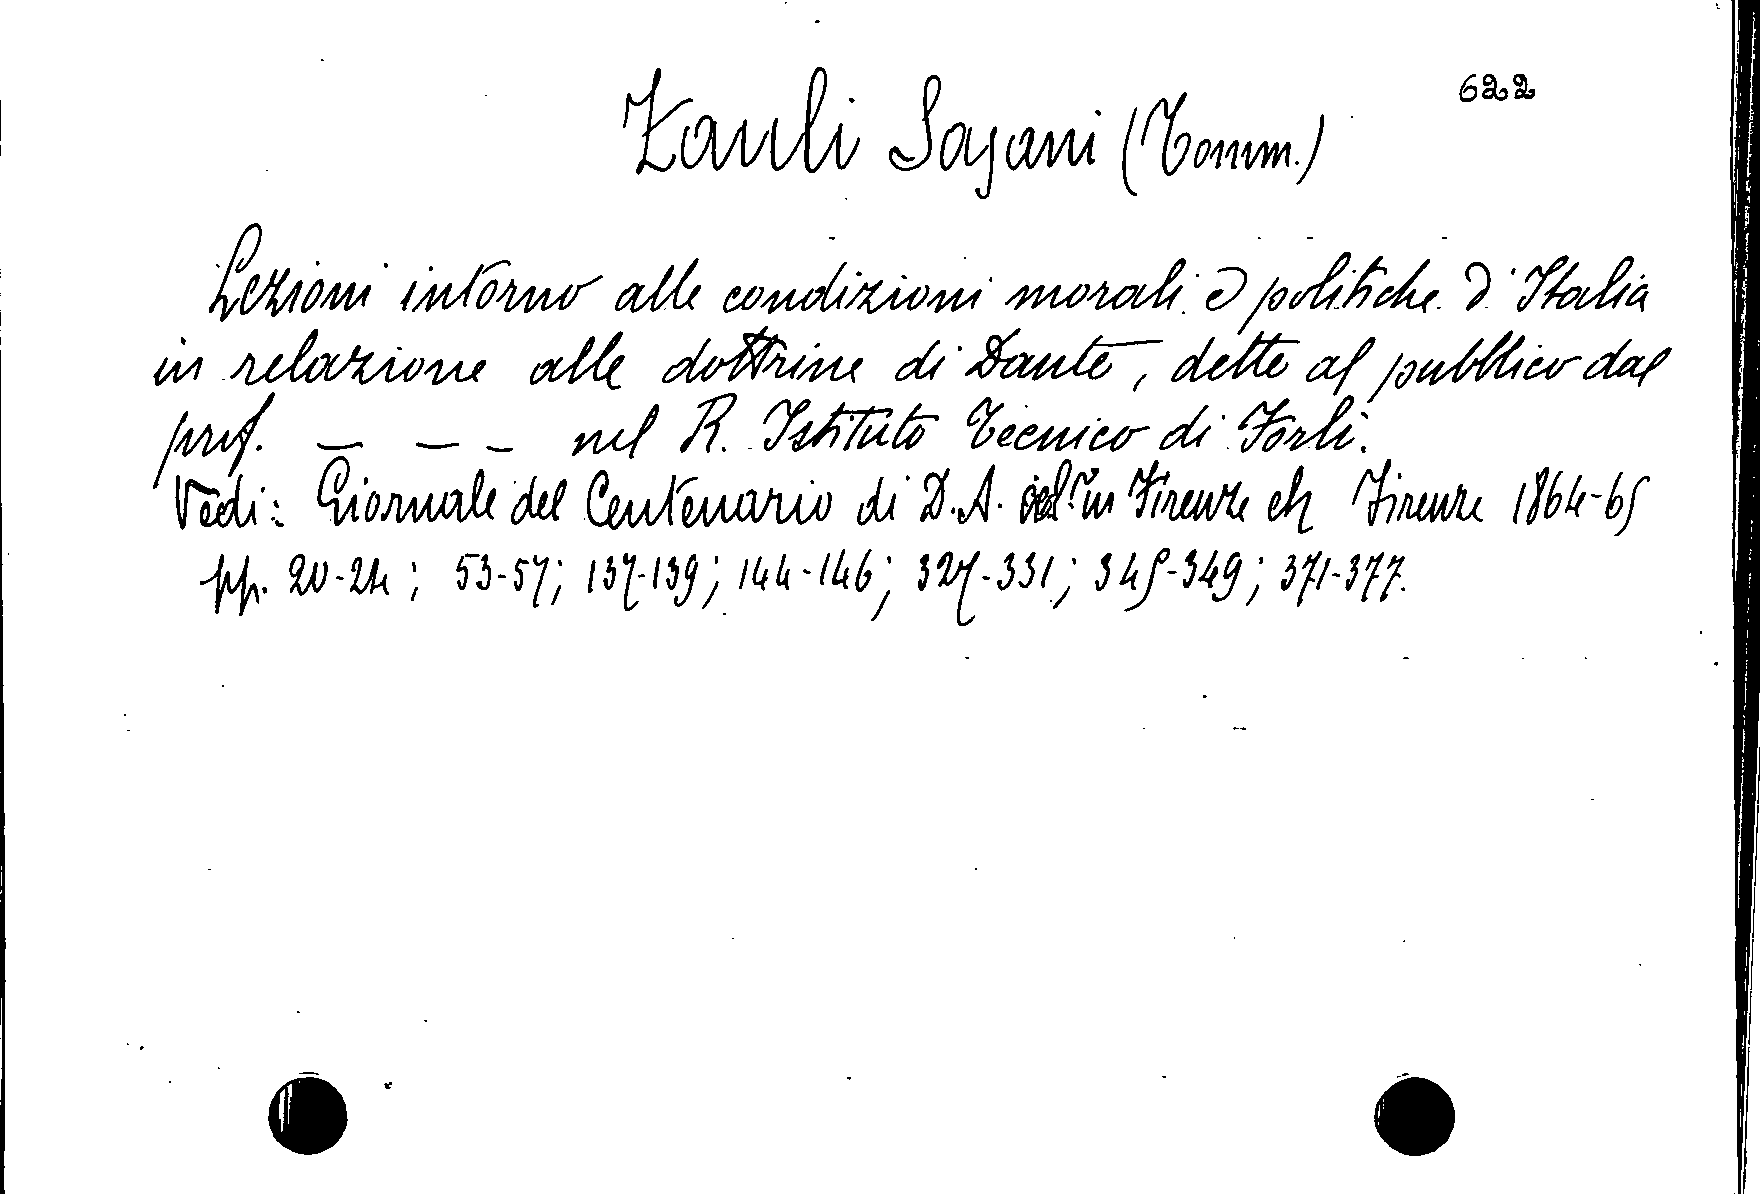 622
Zauli Sajani (Tomm.)
Lezioni intorno alle condizioni morali e politiche d'Italia
in relazione alle dottrine di Dante, dette al pubblico dal
prof. — — – nel R. Istituto Tecnico di Forlì.
Vedi: Giornale del Centenario di D. A. in Firenze Firenze 1864-65
pp. 20-24; 53-57; 137-139; 144-146; 327-331; 345-349; 371-377.